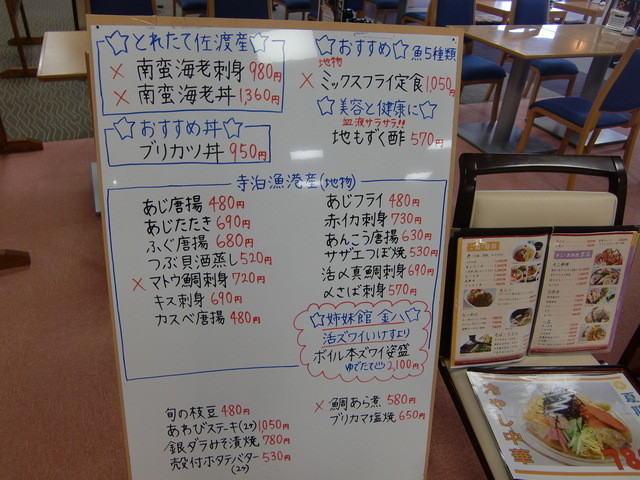 ☆とれたて佐渡産☆
× 南蛮海老刺身 980円
× 南蛮海老丼 1,360円
☆おすすめ丼☆
ブリカツ丼 950円
☆おすすめ☆ 魚5種類
地物
× ミックスフライ定食 1,050円
☆美容と健康に☆
血液サラサラ!!
地もずく酢 570円
寺泊漁港産(地物)
あじ唐揚 480円
あじたたき 690円
ふぐ唐揚 680円
つぶ貝酒蒸し 520円
× マトウ鯛刺身 720円
キス刺身 690円
カスベ唐揚 480円
あじフライ 480円
赤イカ刺身 730円
あんこう唐揚 630円
サザエつぼ焼 530円
活〆真鯛刺身 690円
〆さば刺身 570円
☆姉妹館 金八☆
活ズワイいけすより
ボイル本ズワイ姿盛
ゆでたて♨ 2,100円
旬の枝豆 480円
あわびステーキ(2ケ) 1,050円
銀ダラみそ漬焼 780円
殻付ホタテバター 530円
(2ケ)
× 鯛あら煮 580円
ブリカマ塩焼 650円
冷やし中華